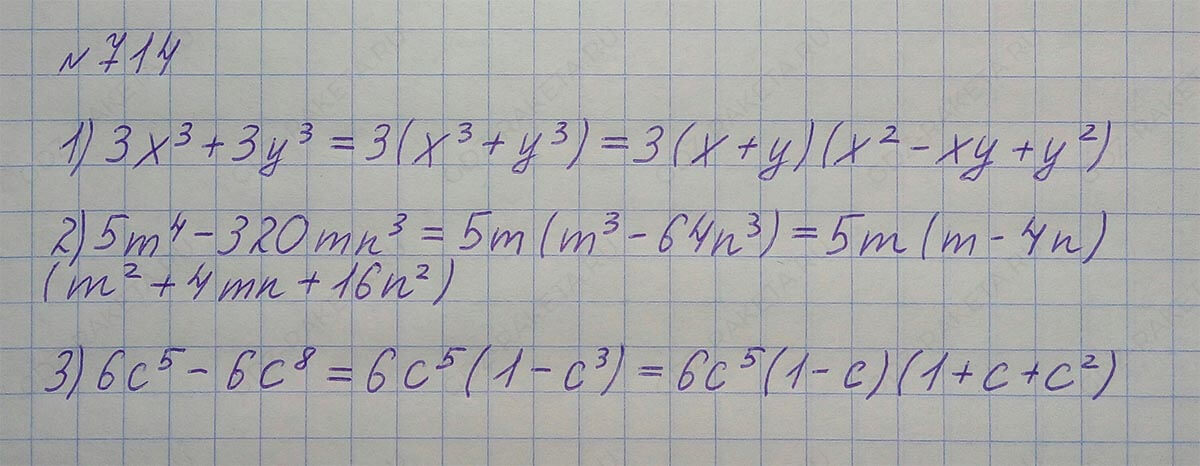 № 714
1) 3x³ + 3y³ = 3(x³ + y³) = 3(x + y)(x² - xy + y²)
2) 5m⁴ - 320mn³ = 5m(m³ - 64n³) = 5m(m - 4n)
(m² + 4mn + 16n²)
3) 6c⁵ - 6c⁸ = 6c⁵(1 - c³) = 6c⁵(1 - c)(1 + c + c²)